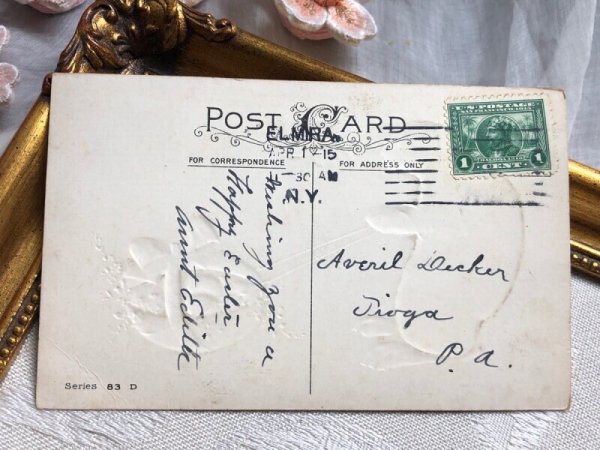 POST CARD
ELMIRA
APR 1 15
30 AM
N.Y.
FOR CORRESPONDENCE
FOR ADDRESS ONLY
U.S. POSTAGE
SAN FRANCISCO 1915
1 CENT 1
Wishing you a
Happy Easter
Aunt Edith
Averil Decker
Tioga
P.A.
Series 83 D